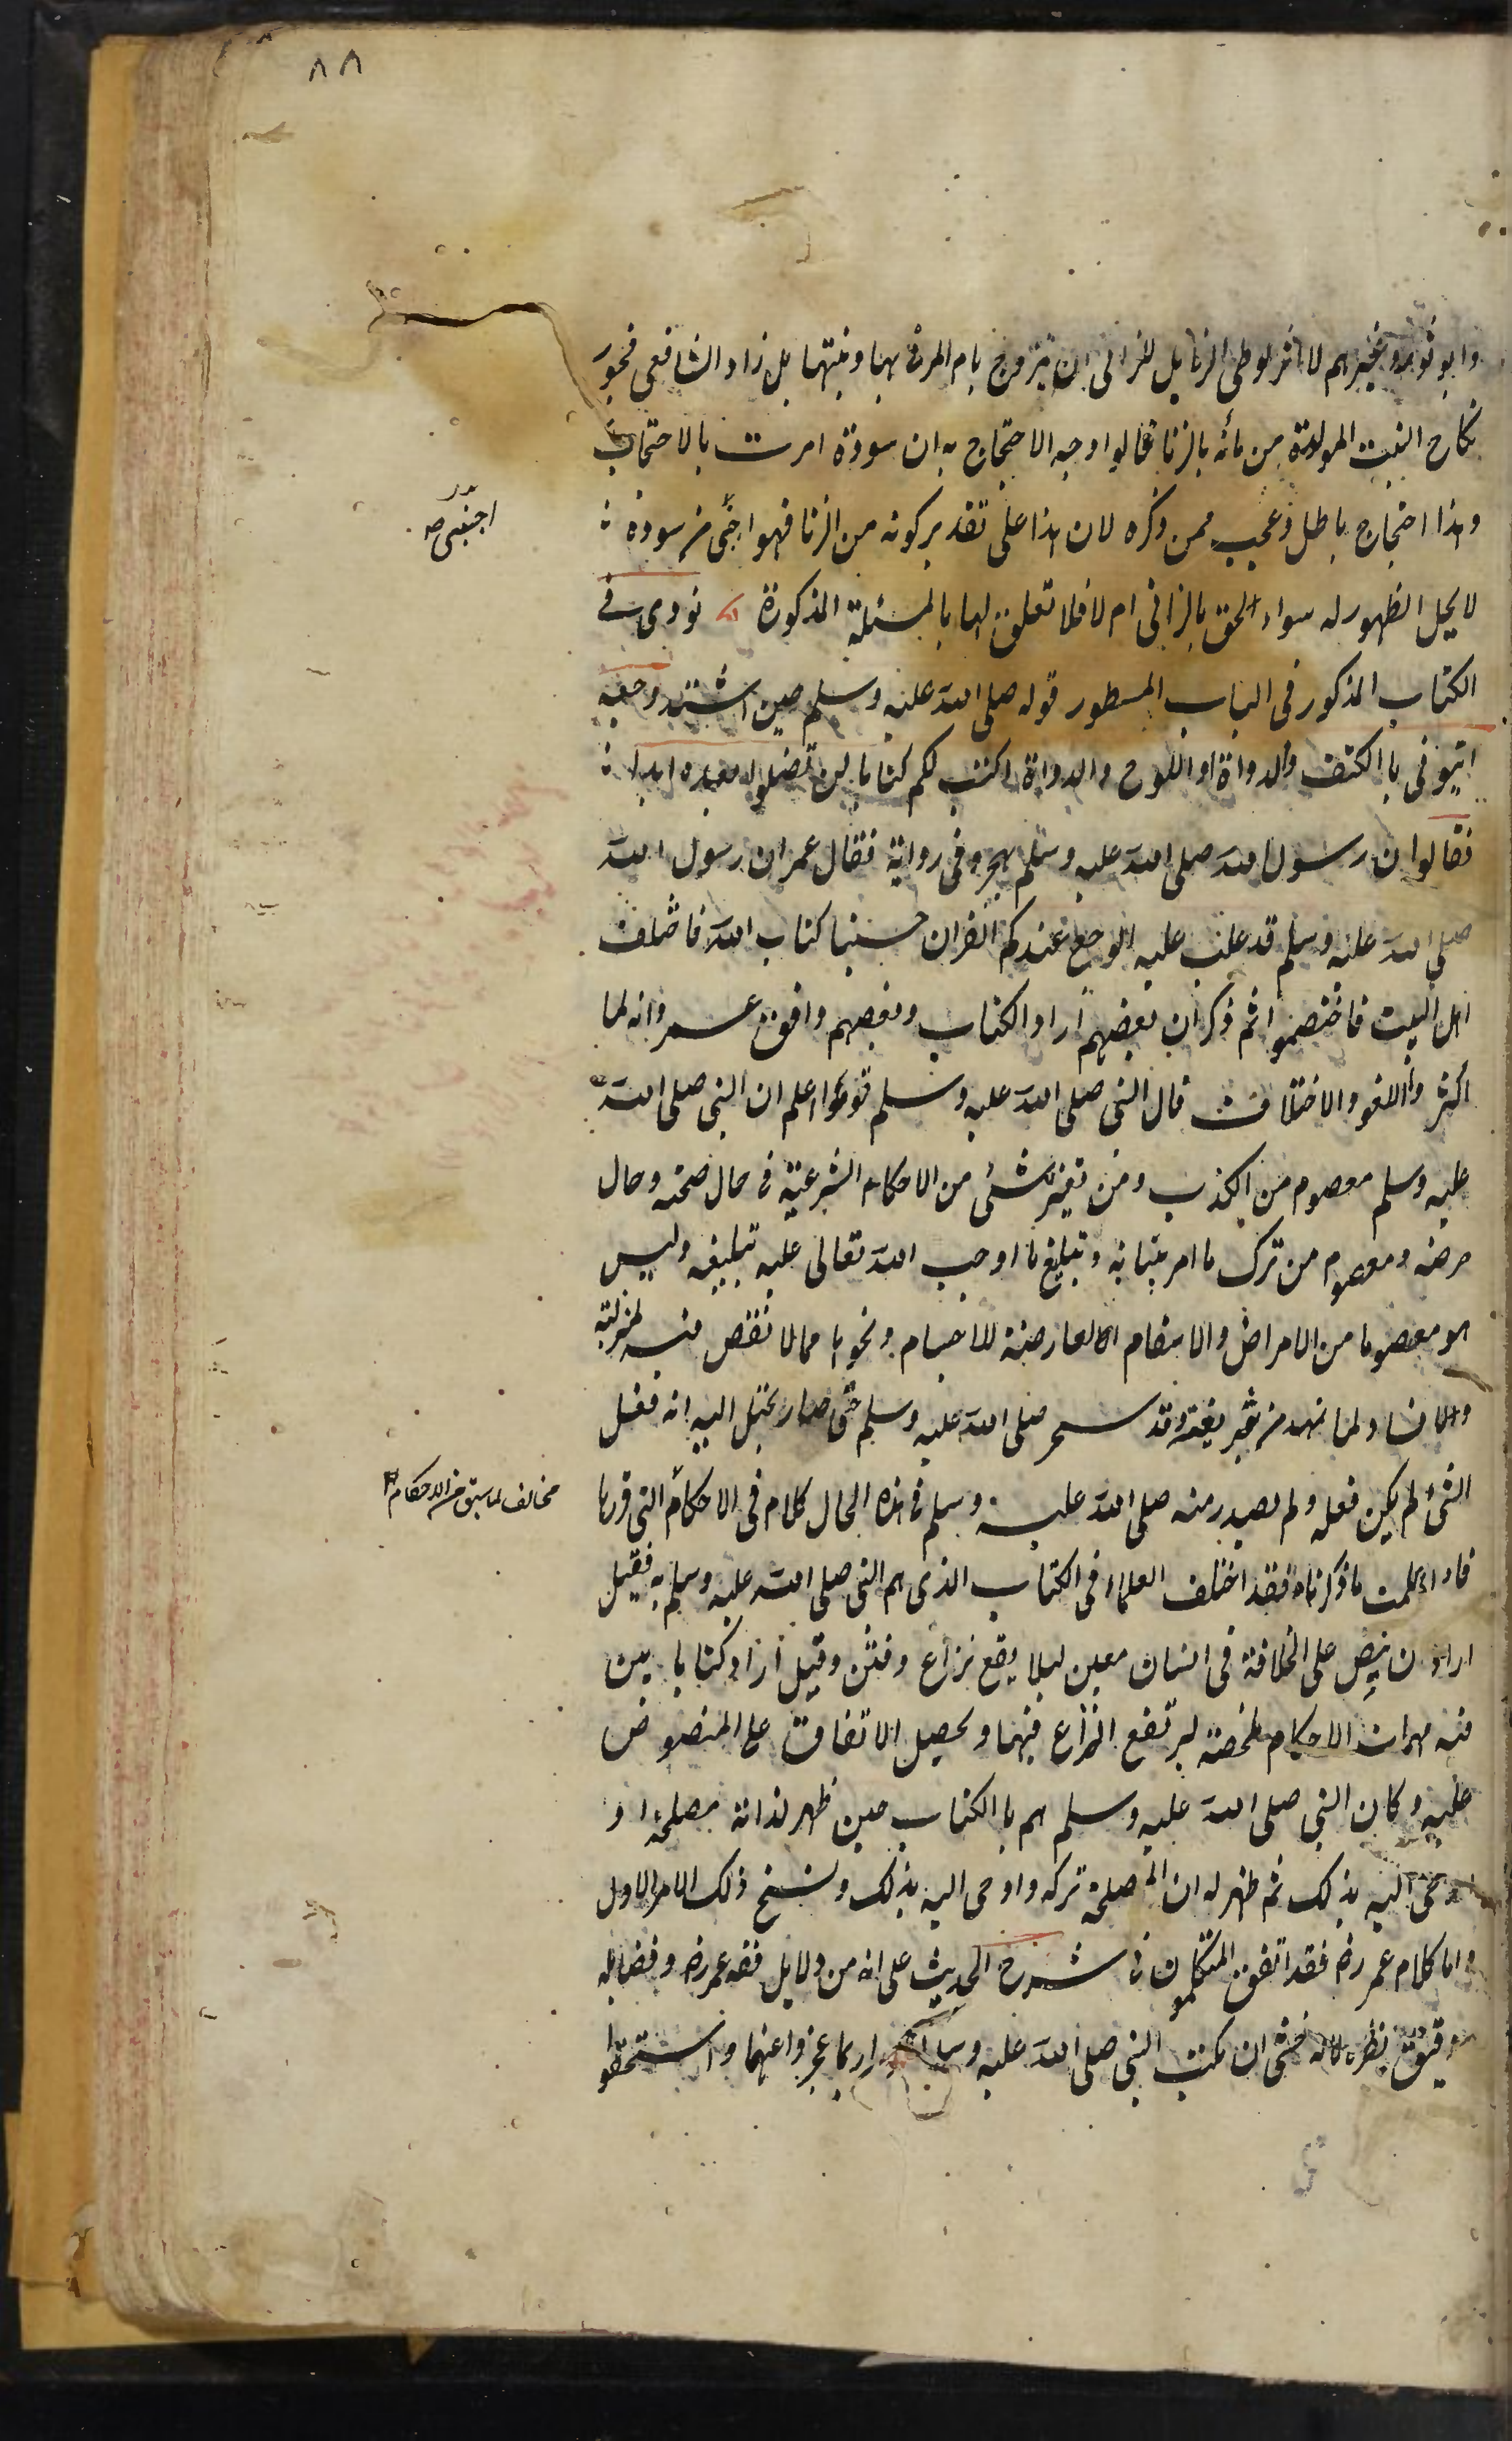 ٨٨
وابو ثور وغيرهم لا اثر لوطى الزنا بل للزانى ان يتزوج بام المزنى بها وبنتها بل زاد الشافعى فجوز
نكاح البنت المولدة من مائه بالزنا قالوا وجه الاحتجاج به ان سودة امرت بالاحتجاب
وهذا احتجاج باطل وعجب ممن ذكره لان هذا على تقدير كونه من الزنا فهو اجنبى من سودة
اجنبى صح
لا يحل الظهور له سواء الحق بالزانى ام لا فلا تعلق لها بالمسئلة المذكورة نووى فى
الكتاب المذكور فى الباب المسطور قوله صلى الله عليه وسلم حين اشتد وجعه
ايتونى باالكتف والدواة او اللوح والدواة اكتب لكم كتابا لن تضلوا بعده ابدا
فقالوا ان رسول الله صلى الله عليه وسلم يهجر وفى رواية فقال عمر ان رسول الله
صلى الله عليه وسلم قد غلب عليه الوجع عندكم القران حسبنا كتاب الله فاختلف
اهل البيت فاختصموا ثم ذكر ان بعضهم اراد الكتاب وبعضهم وافق عمر وانه لما
اكثر واللغو والاختلاف قال النبى صلى الله عليه وسلم قوموا اعلم ان النبى صلى الله
عليه وسلم معصوم من الكذب ومن تغير شئ من الاحكام الشرعية فى حال صحته وحال
مرضه ومعصوم من ترك ما امر ببيانه وتبليغ ما اوجب الله تعالى عليه تبليغه وليس
هو معصوما من الامراض والاسقام العارضة للاجسام ونحوها مما لا نقص فيه لمنزلته
ولا فساد لما تمهد من شريعته وقد سحر صلى الله عليه وسلم حتى صار يخيل اليه انه فعل
الشئ لم يكن فعله ولم يصدر منه صلى الله عليه وسلم فى هذه الحال كلام فى الاحكام التى قررها
مخالف لما سبق من الاحكام
فاذا علمت ما ذكرناه فقد اختلف العلماء فى الكتاب الذى هم النبى صلى الله عليه وسلم به فقيل
اراد ان ينص على الخلافة فى انسان معين ليلا يقع نزاع وفتن وقيل اراد كتابا يبين
فيه مهمات الاحكام ملخصة ليرتفع النزاع فيها ويحصل الاتفاق على المنصوص
عليه وكان النبى صلى الله عليه وسلم هم باالكتاب حين ظهر له انه مصلحة او
اوحى اليه بذلك ثم ظهر له ان المصلحة تركه واوحى اليه بذلك ونسخ ذلك الامر الاول
واما كلام عمر رض فقد اتفق المتكلمون فى شرح الحديث على انه من دلايل فقه عمر رض وفضايله
ودقيق نظره لانه خشى ان يكتب النبى صلى الله عليه وسلم امورا ربما عجزوا عنها واستحقوا